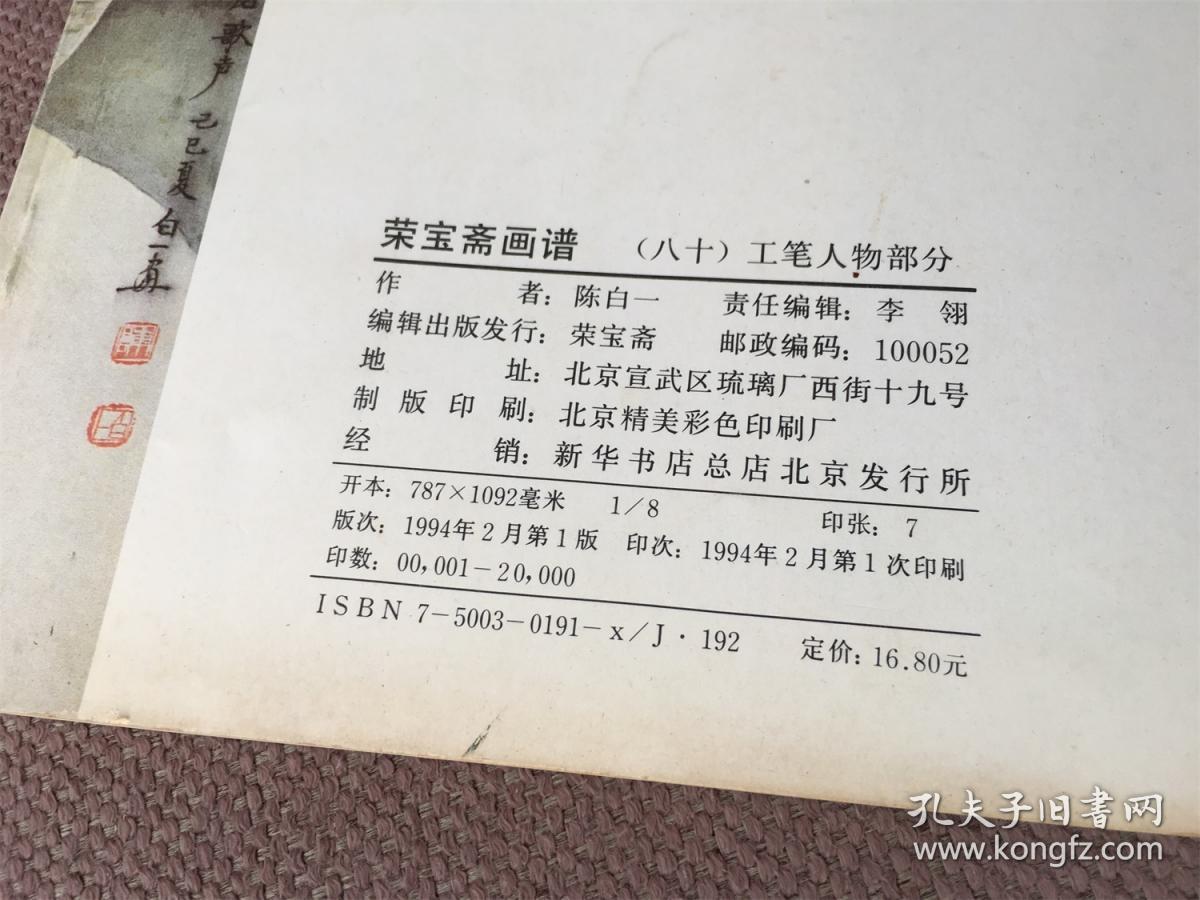 歌声
己巳夏
白一画
荣宝斋画谱 （八十）工笔人物部分
作者：陈白一 责任编辑：李翎
编辑出版发行：荣宝斋 邮政编码：100052
地址：北京宣武区琉璃厂西街十九号
制版印刷：北京精美彩色印刷厂
经销：新华书店总店北京发行所
开本：787×1092毫米 1/8 印张：7
版次：1994年2月第1版 印次：1994年2月第1次印刷
印数：00,001－20,000
ISBN 7－5003－0191－x/J·192 定价：16.80元
孔夫子旧书网
www.kongfz.com